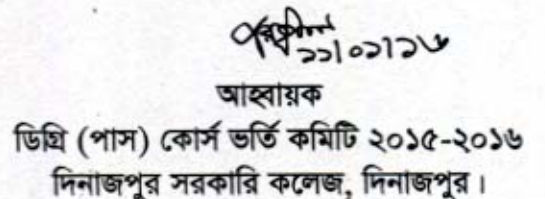 ১১/০১/১৬
আহ্বায়ক
ডিগ্রি (পাস) কোর্স ভর্তি কমিটি ২০১৫-২০১৬
দিনাজপুর সরকারি কলেজ, দিনাজপুর।